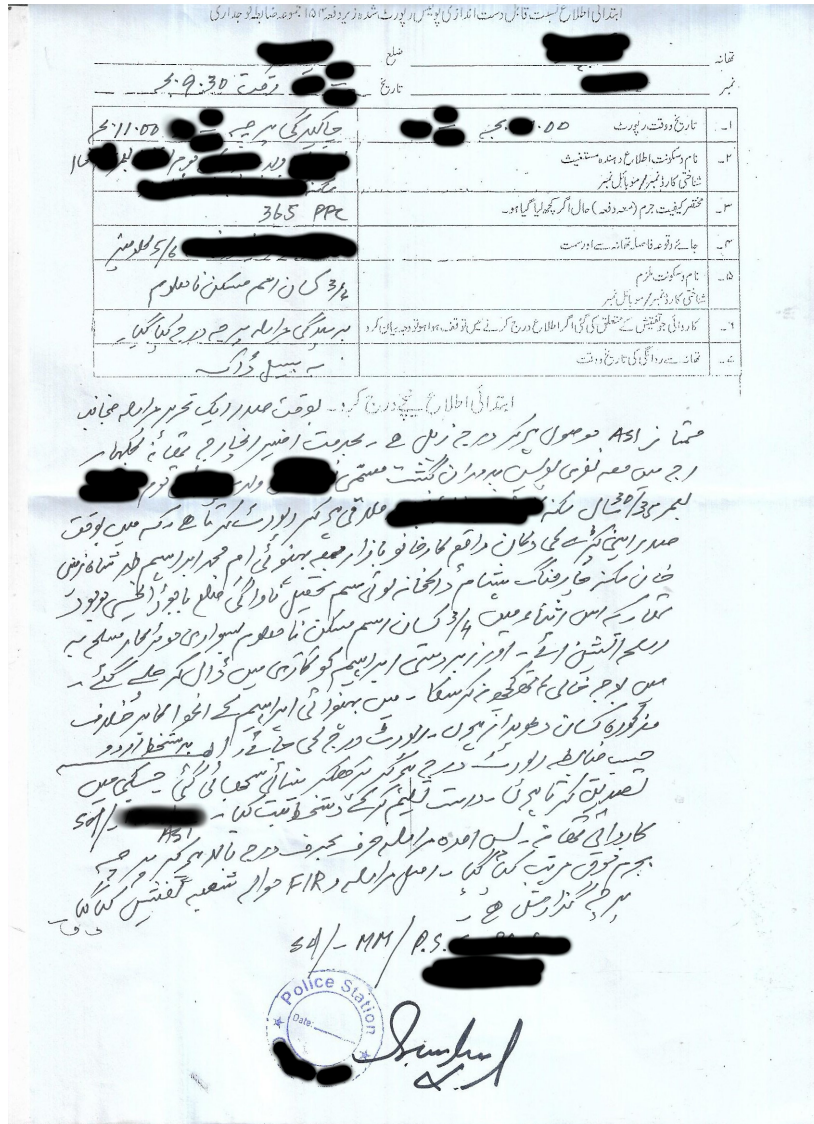 ابتدائی اطلاع نسبت قابل دست اندازی پولیس رپورٹ شدہ زیر دفعہ ۱۵۴ مجموعہ ضابطہ فوجداری
تھانہ ضلع
نمبر تاریخ وقت 9:30 بجے
۱۔ تاریخ و وقت رپورٹ 1.00 بجے چاکیدگی پرچہ 11:00 بجے
۲۔ نام و سکونت اطلاع دہندہ مستغیث ولد قوم
شناختی کارڈ نمبر/موبائل نمبر
۳۔ مختصر کیفیت جرم (معہ دفعہ) حال اگر کچھ لیا گیا ہو۔ 365 PPC
۴۔ جائے وقوعہ فاصلہ تھانہ سے اور سمت 5/6 کلومیٹر
۵۔ نام و سکونت ملزم 3/4 کسان اسم مسکن نامعلوم
شناختی کارڈ نمبر/موبائل نمبر
۶۔ کاروائی جو تفتیش کے متعلق کی گئی اگر اطلاع درج کرنے میں توقف ہوا ہو تو وجہ بیان کرو برسیدگی مراسلہ پرچہ درج کیا گیا۔
۷۔ تھانہ سے روانگی کی تاریخ و وقت بہ سبیل ڈاک
ابتدائی اطلاع نیچے درج کرو۔ بوقت صدر ایک تحریری مراسلہ منجانب
ممتاز ASI موصول ہو کر درج ذیل ہے۔ بخدمت افسر انچارج تھانہ
میں معہ نفری پولیس بدوران گشت مسمی ولد قوم
بعمر 35/36 سال سکنہ ملاقی ہو کر رپورٹ کرتا ہے۔ کہ میں بوقت
صدر اپنی کپڑے کی دکان واقع کارخانو بازار معہ بہنوئی ام محمد ابراہیم ولد شاہ زمین
خان سکنہ ڈاکخانہ لوئی سم تحصیل ناواگی ضلع باجوڑ ایجنسی موجود
تھا۔ کہ اس اثناء میں 3/4 کسان اسم مسکن نامعلوم بسواری موٹر کار مسلح بہ
اسلحہ آتشین آئے۔ اور زبردستی ابراہیم کو گاڑی میں ڈال کر چلے گئے۔
میں بوجہ خالی ہاتھ کچھ نہ کر سکا۔ میں بہنوئی ابراہیم کے اغوا کا بر خلاف
مذکورہ کسان دعویدار ہوں۔ رپورٹ درج کی جائے۔ دستخط اردو
حسب ضابطہ رپورٹ درج ہو کر پڑھ کر سنائی سمجھائی گئی جسکی میں
تصدیق کرتا ہوں۔ درست تسلیم کر کے دستخط ثبت کیا۔ Sd/-
ASI
کاروائی تھانہ۔ پس آمدہ مراسلہ حرف بحرف درج بالا ہو کر پرچہ
بجرم فوق مرتب کیا گیا۔ اصل مراسلہ و FIR حوالہ شعبہ تفتیش کیا گیا
پرچہ گذارش ہے۔
Sd/- MM/ P.S.
Police Station
Date: